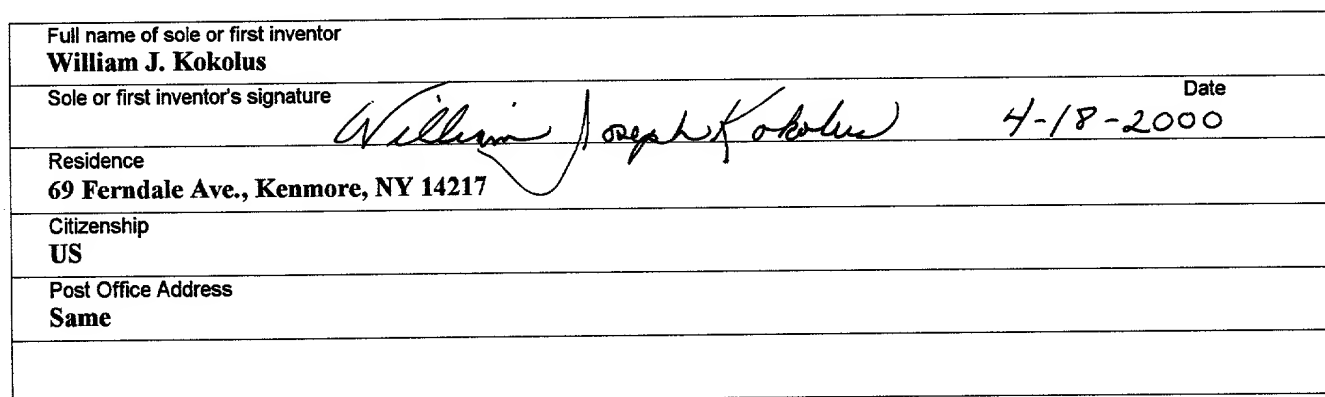 Full name of sole or first inventor
William J. Kokolus
Sole or first inventor's signature
Date
William Joseph Kokolus 4-18-2000
Residence
69 Ferndale Ave., Kenmore, NY 14217
Citizenship
US
Post Office Address
Same